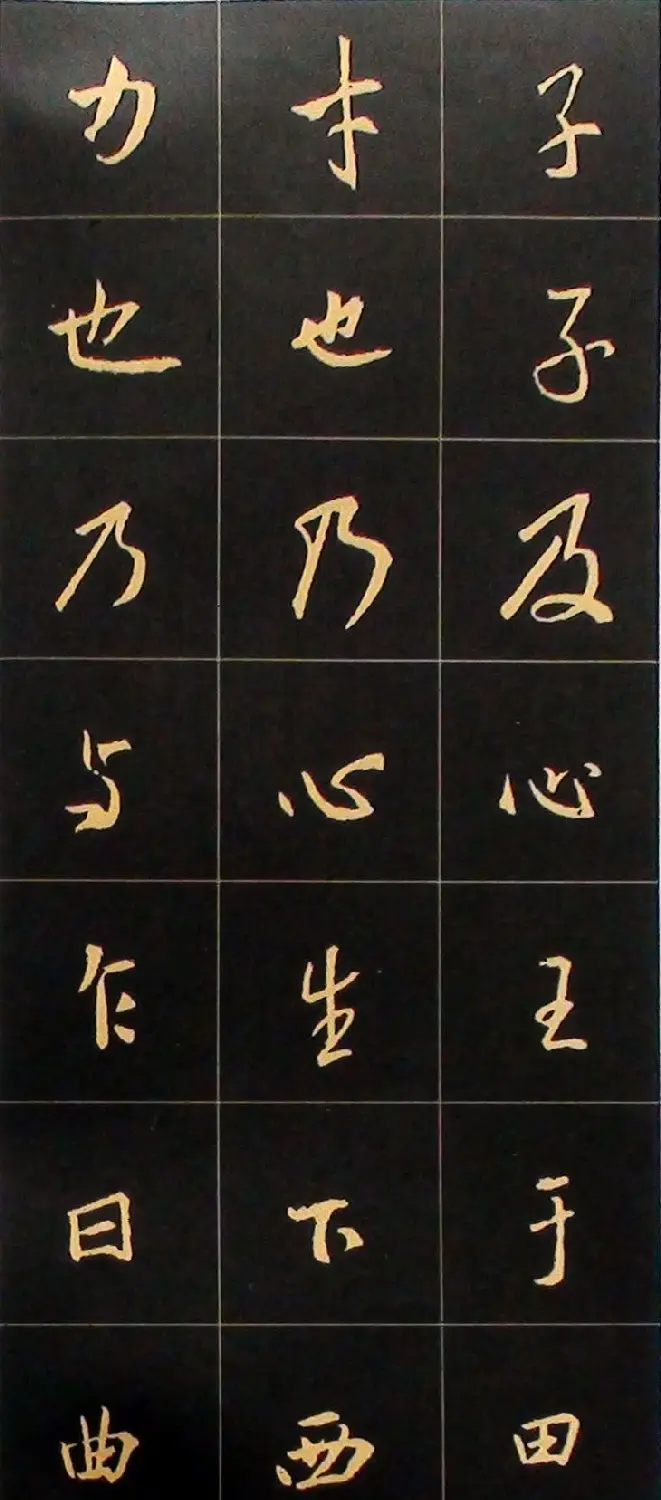 力 才 子
也 也 子
乃 乃 及
与 心 心
乍 生 王
曰 下 于
曲 西 田